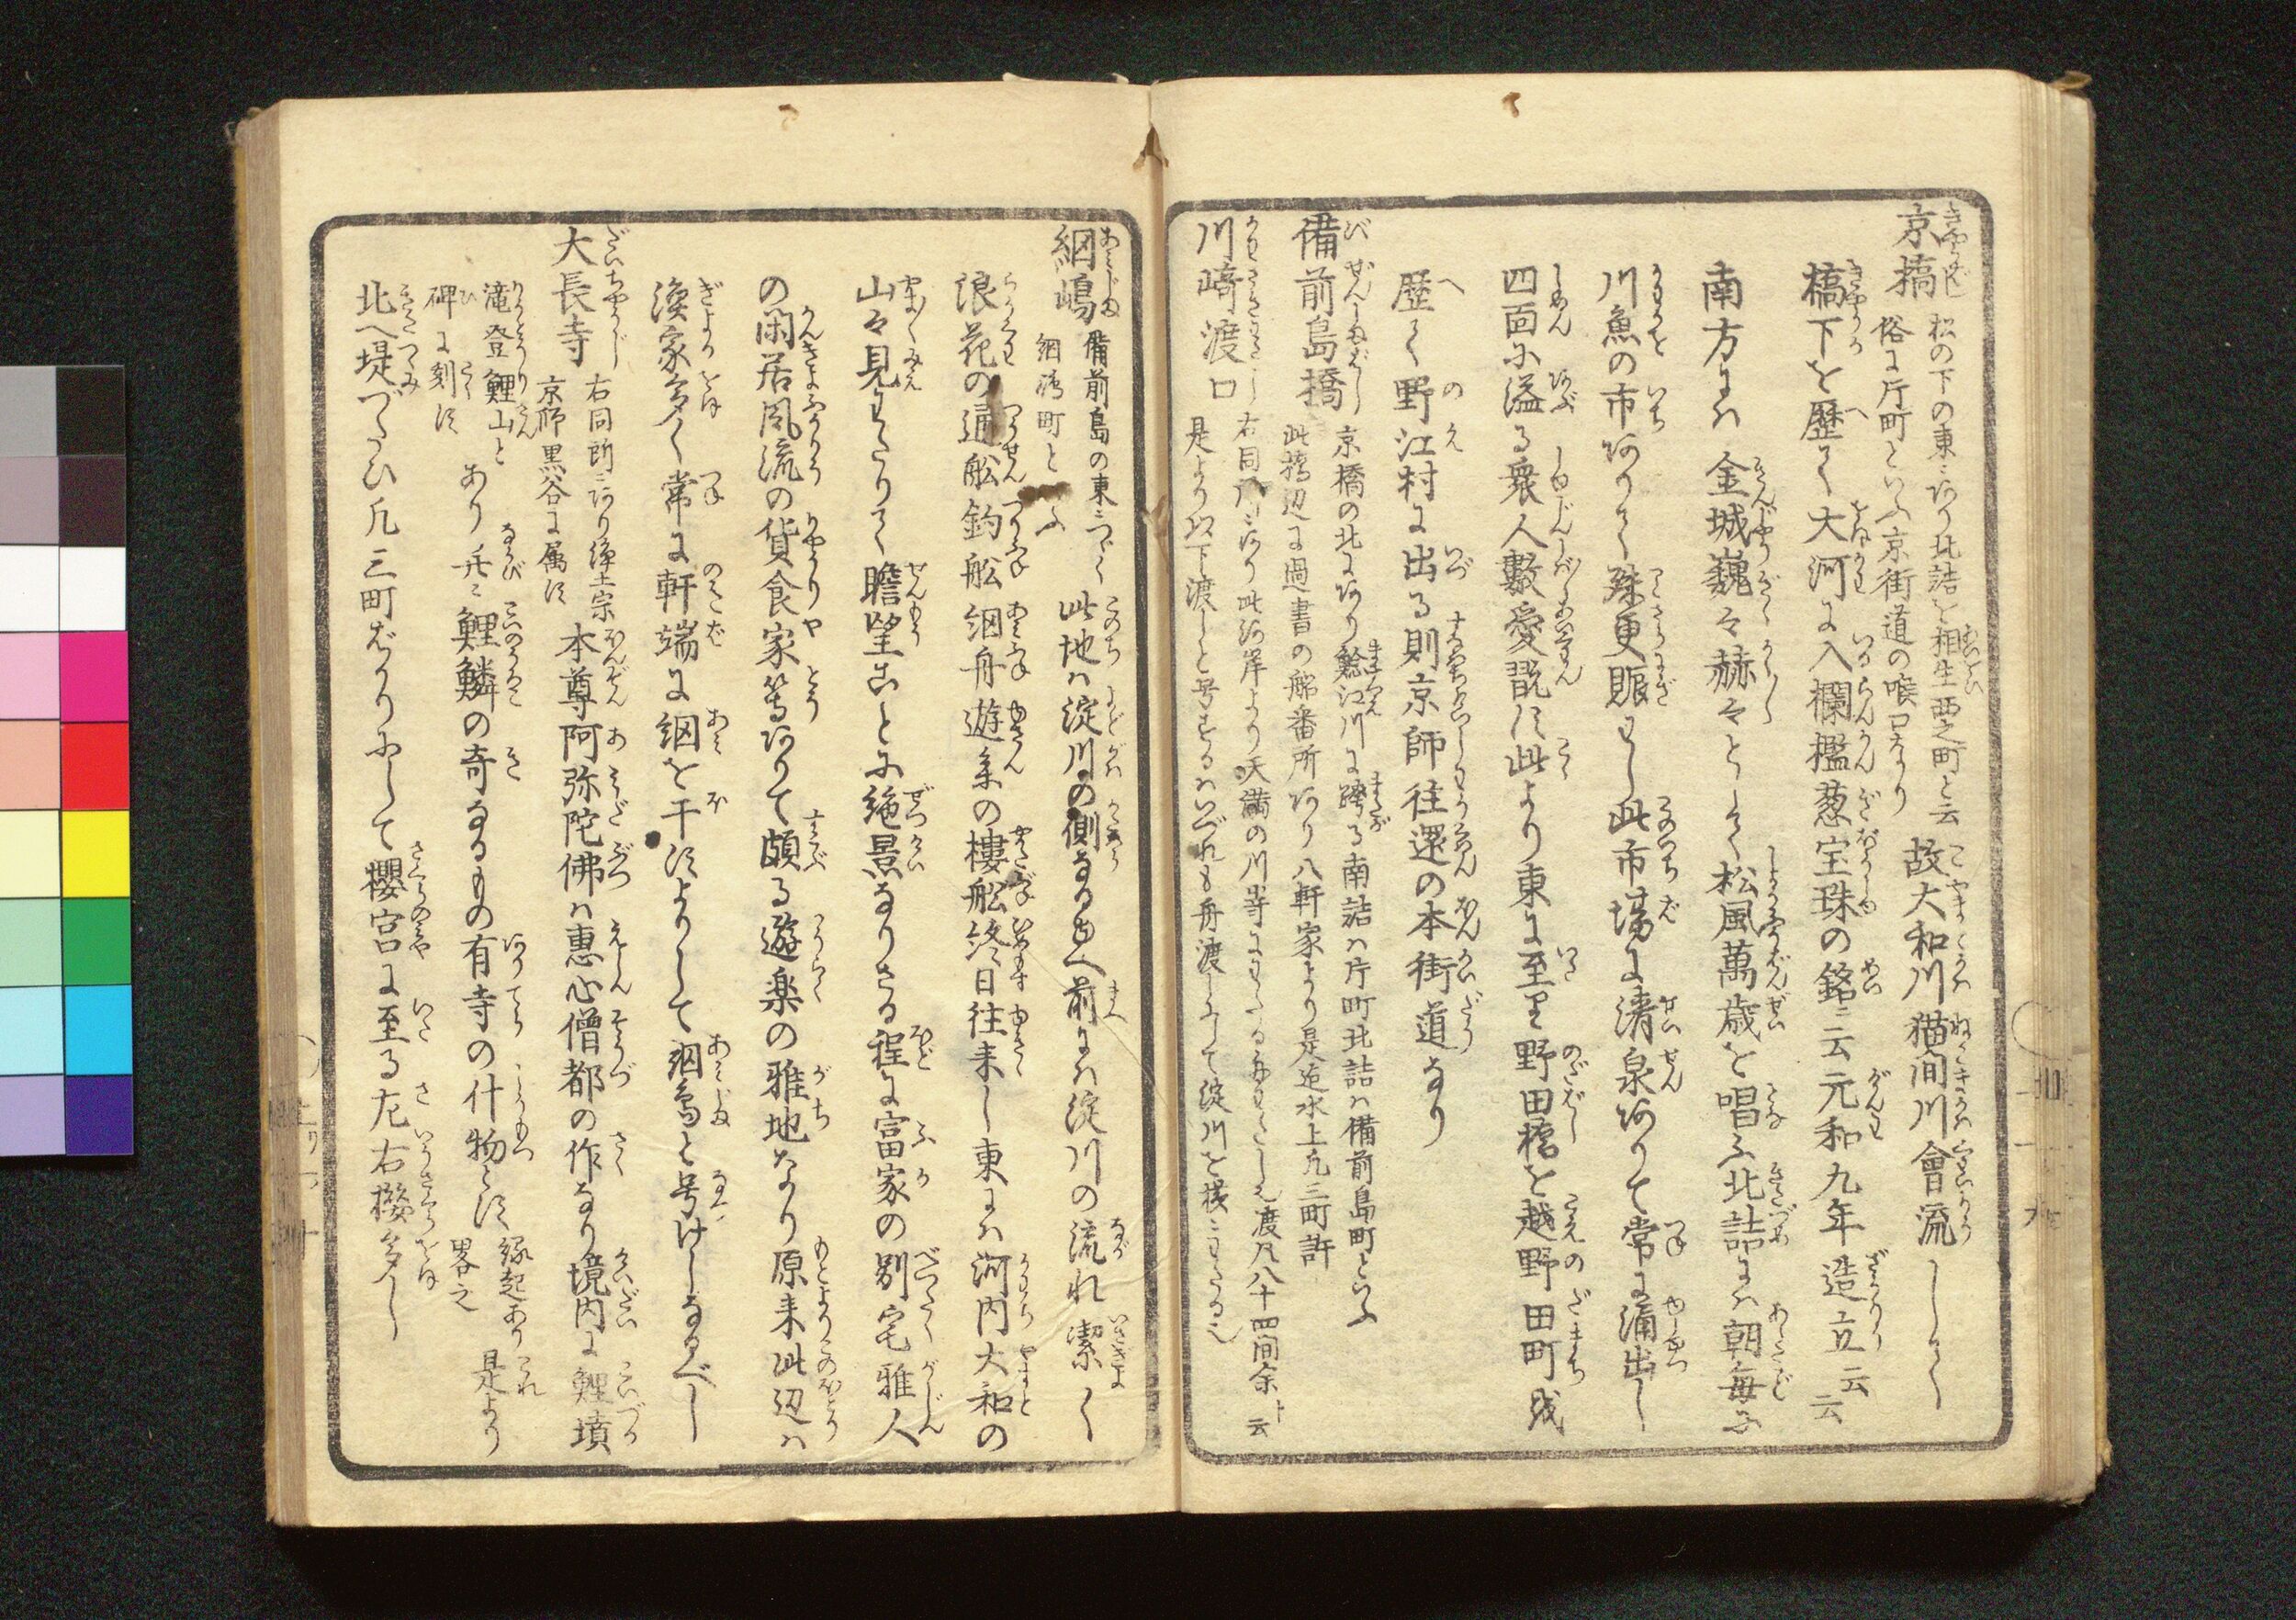 京橋 松の下の東ニあり北詰を相生西之町と云
俗に片町といふ京街道の喉口なり
故大和川猫間川會流しく
橋下を歴て大河に入欄檻葱宝珠の銘ニ云元和九年造立云云
南方には金城巍々赫々として松風萬歳を唱ふ北詰には朝毎に
川魚の市ありて殊更賑はし此市場に清泉ありて常に涌出し
四面に溢る衆人數愛翫す此より東に至り野田橋を越野田町
歴て野江村に出る則京師往還の本街道なり
備前島橋 京橋の北にあり鯰江川に跨る南詰は片町北詰は備前島町といふ
此橋辺に過書の舩番所あり八軒家より是迄水上凡三町許
川﨑渡口 右同所にあり此河岸より天満の川﨑にわたる舟わたし也渡凡八十四間余ト云
是より以下渡しと号するはいづれも舟渡しにして淀川を横ニわたる也
網嶋 備前島の東ニつゞく
網嶋町といふ
此地は淀川の側なるゆへ前には淀川の流れ潔く
浪花の通舩釣舩網舟遊糸の樓舩終日往来し東には河内大和の
山々見えわたりて瞻望ことに絶景なりさる程に富家の別宅雅人
の閑居風流の貸食家等ありて頗る遊楽の雅地なり原来此辺は
漁家多く常に軒端に網を干すよりして網島と号けしなるべし
大長寺 右同所ニあり淨土宗
京師黒谷に属す
本尊阿弥陀佛は惠心僧都の作なり境内に鯉墳
滝登鯉山と
碑に刻す
あり并ニ鯉鱗の奇なるもの有寺の什物とす
縁起あり
畧之
是より
北へ堤づたひ凡三町ばかりにして櫻宮に至る左右櫻多し